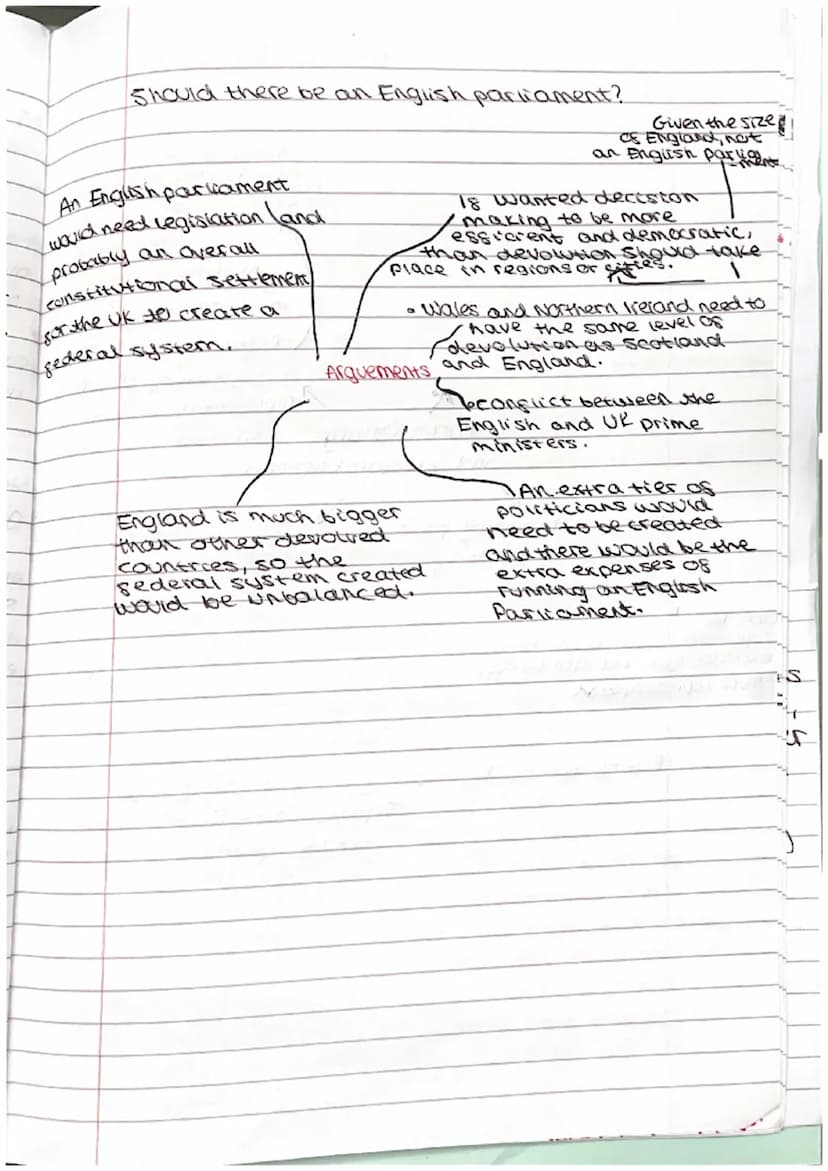 Should there be an English parliament?
Given the size
of England, not
an English parlia
-ment
An English parliament
would need legislation and
probably an overall
constitutional settlement
for the UK to create a
federal system.
If wanted decision
making to be more
efficient and democratic,
than devolution should take
place in regions or cities.
• Wales and Northern Ireland need to
have the same level of
devolution as Scotland
and England.
Arguements
conflict between the
English and UK prime
ministers.
An extra tier of
politicians would
need to be created
and there would be the
extra expenses of
running an English
Parliament.
England is much bigger
than other devolved
countries, so the
federal system created
would be unbalanced.